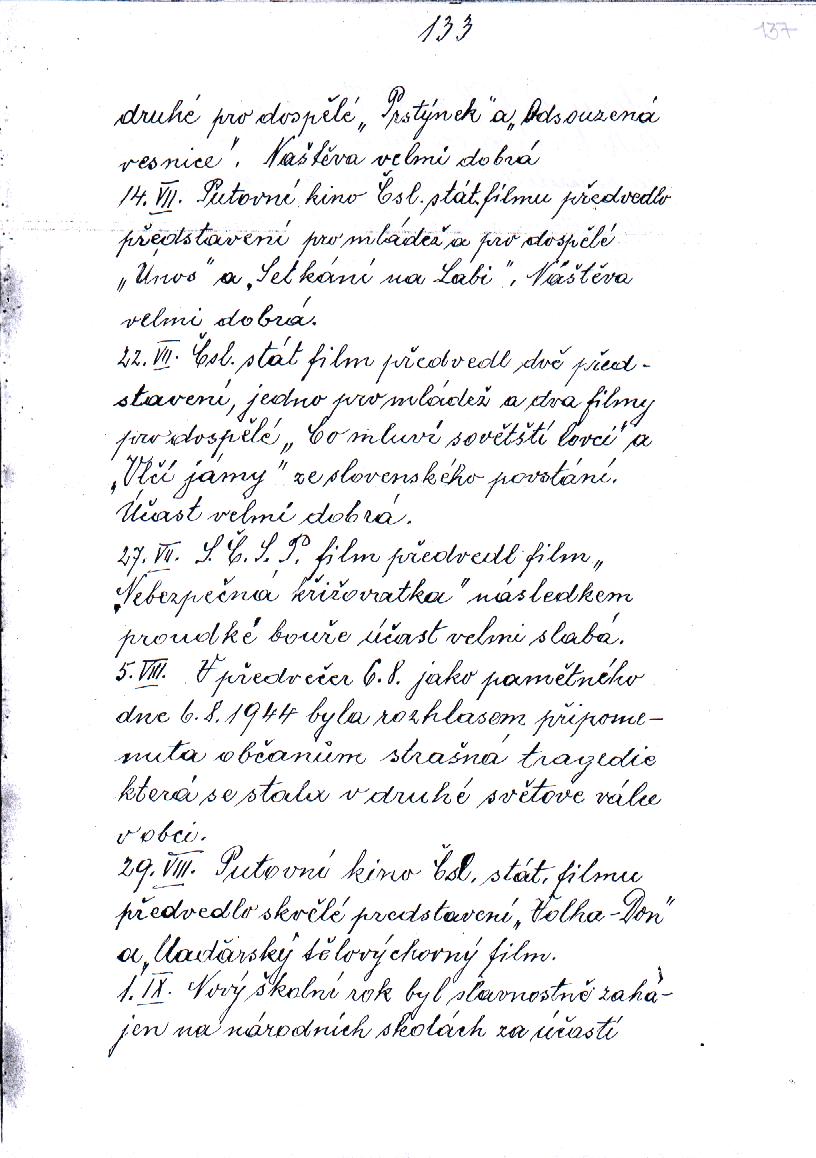 133
137
druhé pro dospělé „Prstýnek" a „Odsouzená
vesnice". Naštěva velmi dobrá
14. VII. Putovní kino Čsl. stát. filmu předvedlo
představení pro mládež a pro dospělé
„Únos" a „Setkání na Labi". Náštěva
velmi dobrá.
22. VII. Čsl. stát film předvedl dvě před-
stavení, jedno pro mládež a dva filmy
pro dospělé „Co mluví sovětští lovci" a
„Vlčí jámy" ze slovenského povstání.
Účast velmi dobrá.
27. VII. S. Č. S. P. film předvedl film „
„Nebezpečná křižovratka" následkem
proudké bouře účast velmi slabá.
5. VIII. V předvečer 6. 8. jako pamětného
dne 6. 8. 1944 byla rozhlasem připome-
nuta občanům strašná tragedie
která se stala v druhé světove válce
v obci.
29. VIII. Putovní kino Čsl. stát. filmu
předvedlo skvělé predstavení „Volha-Don"
a „Maďarský tělovýchovný film.
1. IX. Nový školní rok byl slavnostně zahá-
jen na národních skolách za účastí